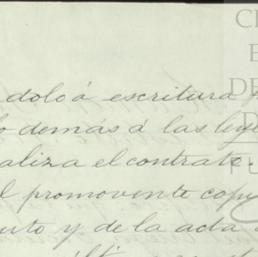 dolo á escritura
demás á las leyes
aliza el contrato.
l promovente cop
uto y de la acta
C
E
DE
D
FU